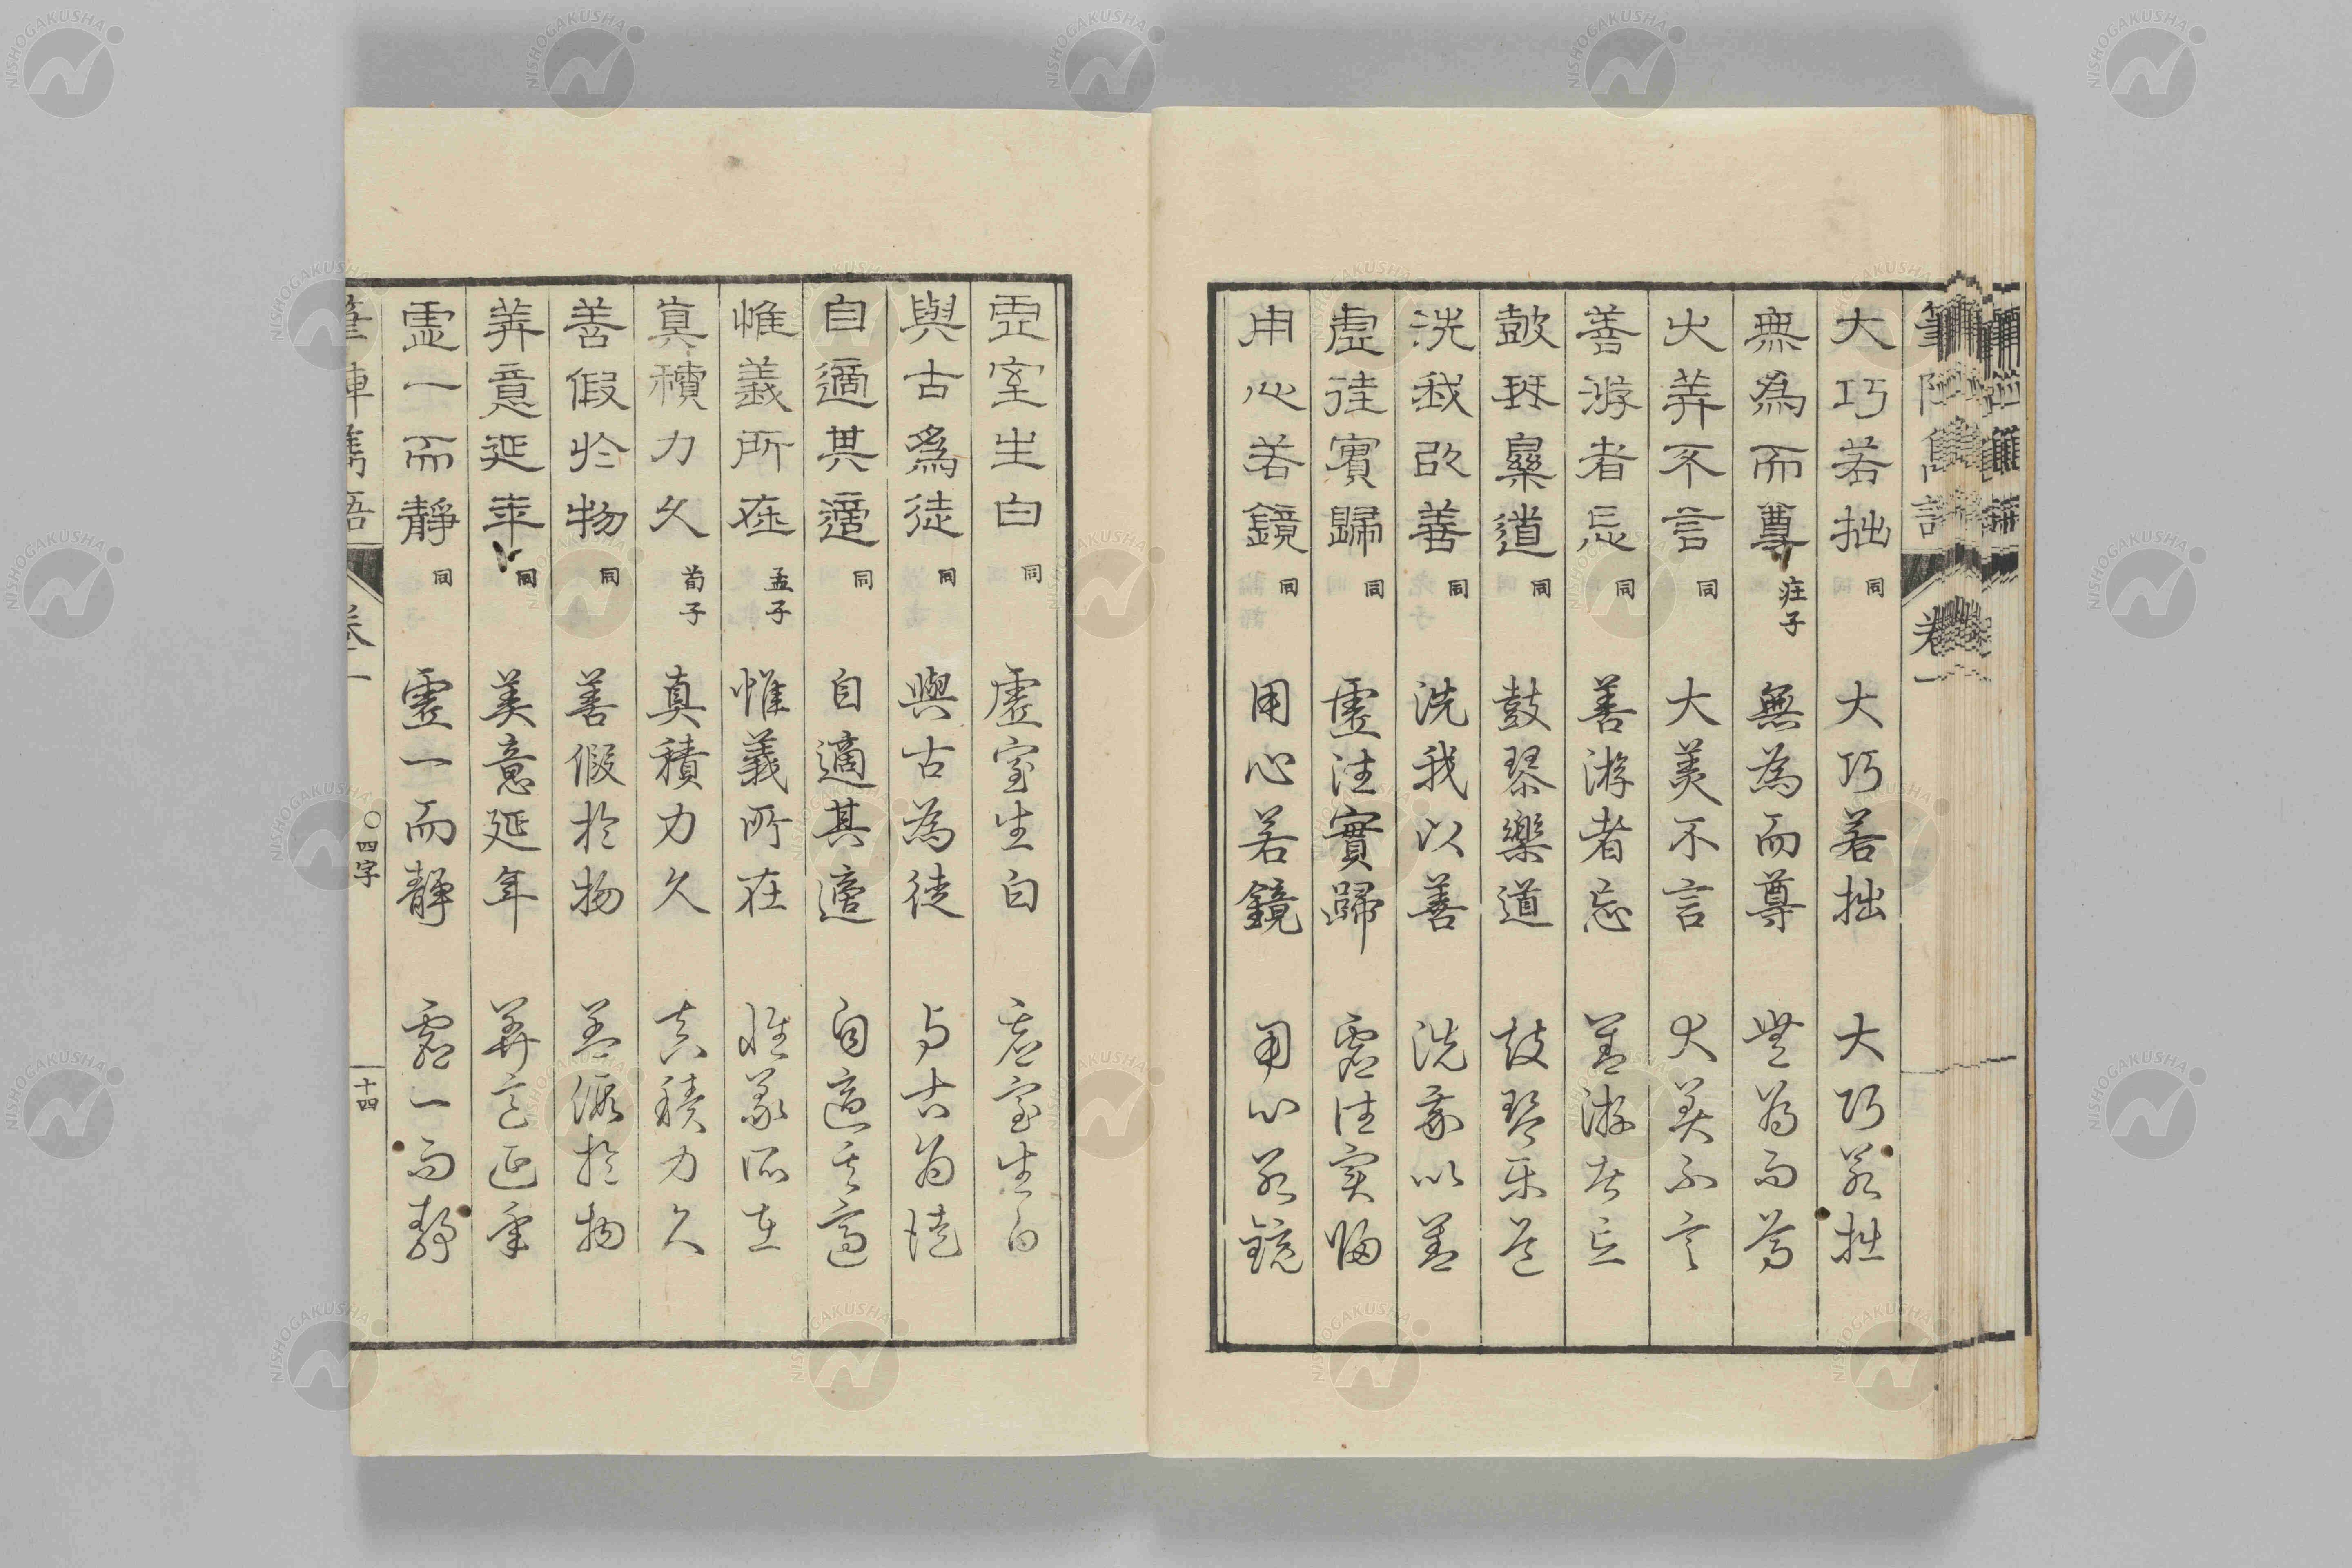 大巧若拙 同 大巧若拙 大巧若拙
無為而尊 荘子 無為而尊 無為而尊
大美不言 同 大美不言 大美不言
善游者忘 同 善游者忘 善游者忘
鼓琴樂道 同 鼓琴樂道 鼓琴樂道
洗我以善 同 洗我以善 洗我以善
虛往實歸 同 虛往實歸 虛往實歸
用心若鏡 同 用心若鏡 用心若鏡
虛室生白 同 虛室生白 虛室生白
與古為徒 同 與古為徒 與古為徒
自適其適 同 自適其適 自適其適
惟義所在 孟子 惟義所在 惟義所在
真積力久 荀子 真積力久 真積力久
善假於物 同 善假於物 善假於物
美意延年 同 美意延年 美意延年
虛一而靜 同 虛一而靜 虛一而靜
筆陣雋語 卷一 〇四字 十四
NISHOGAKUSHA